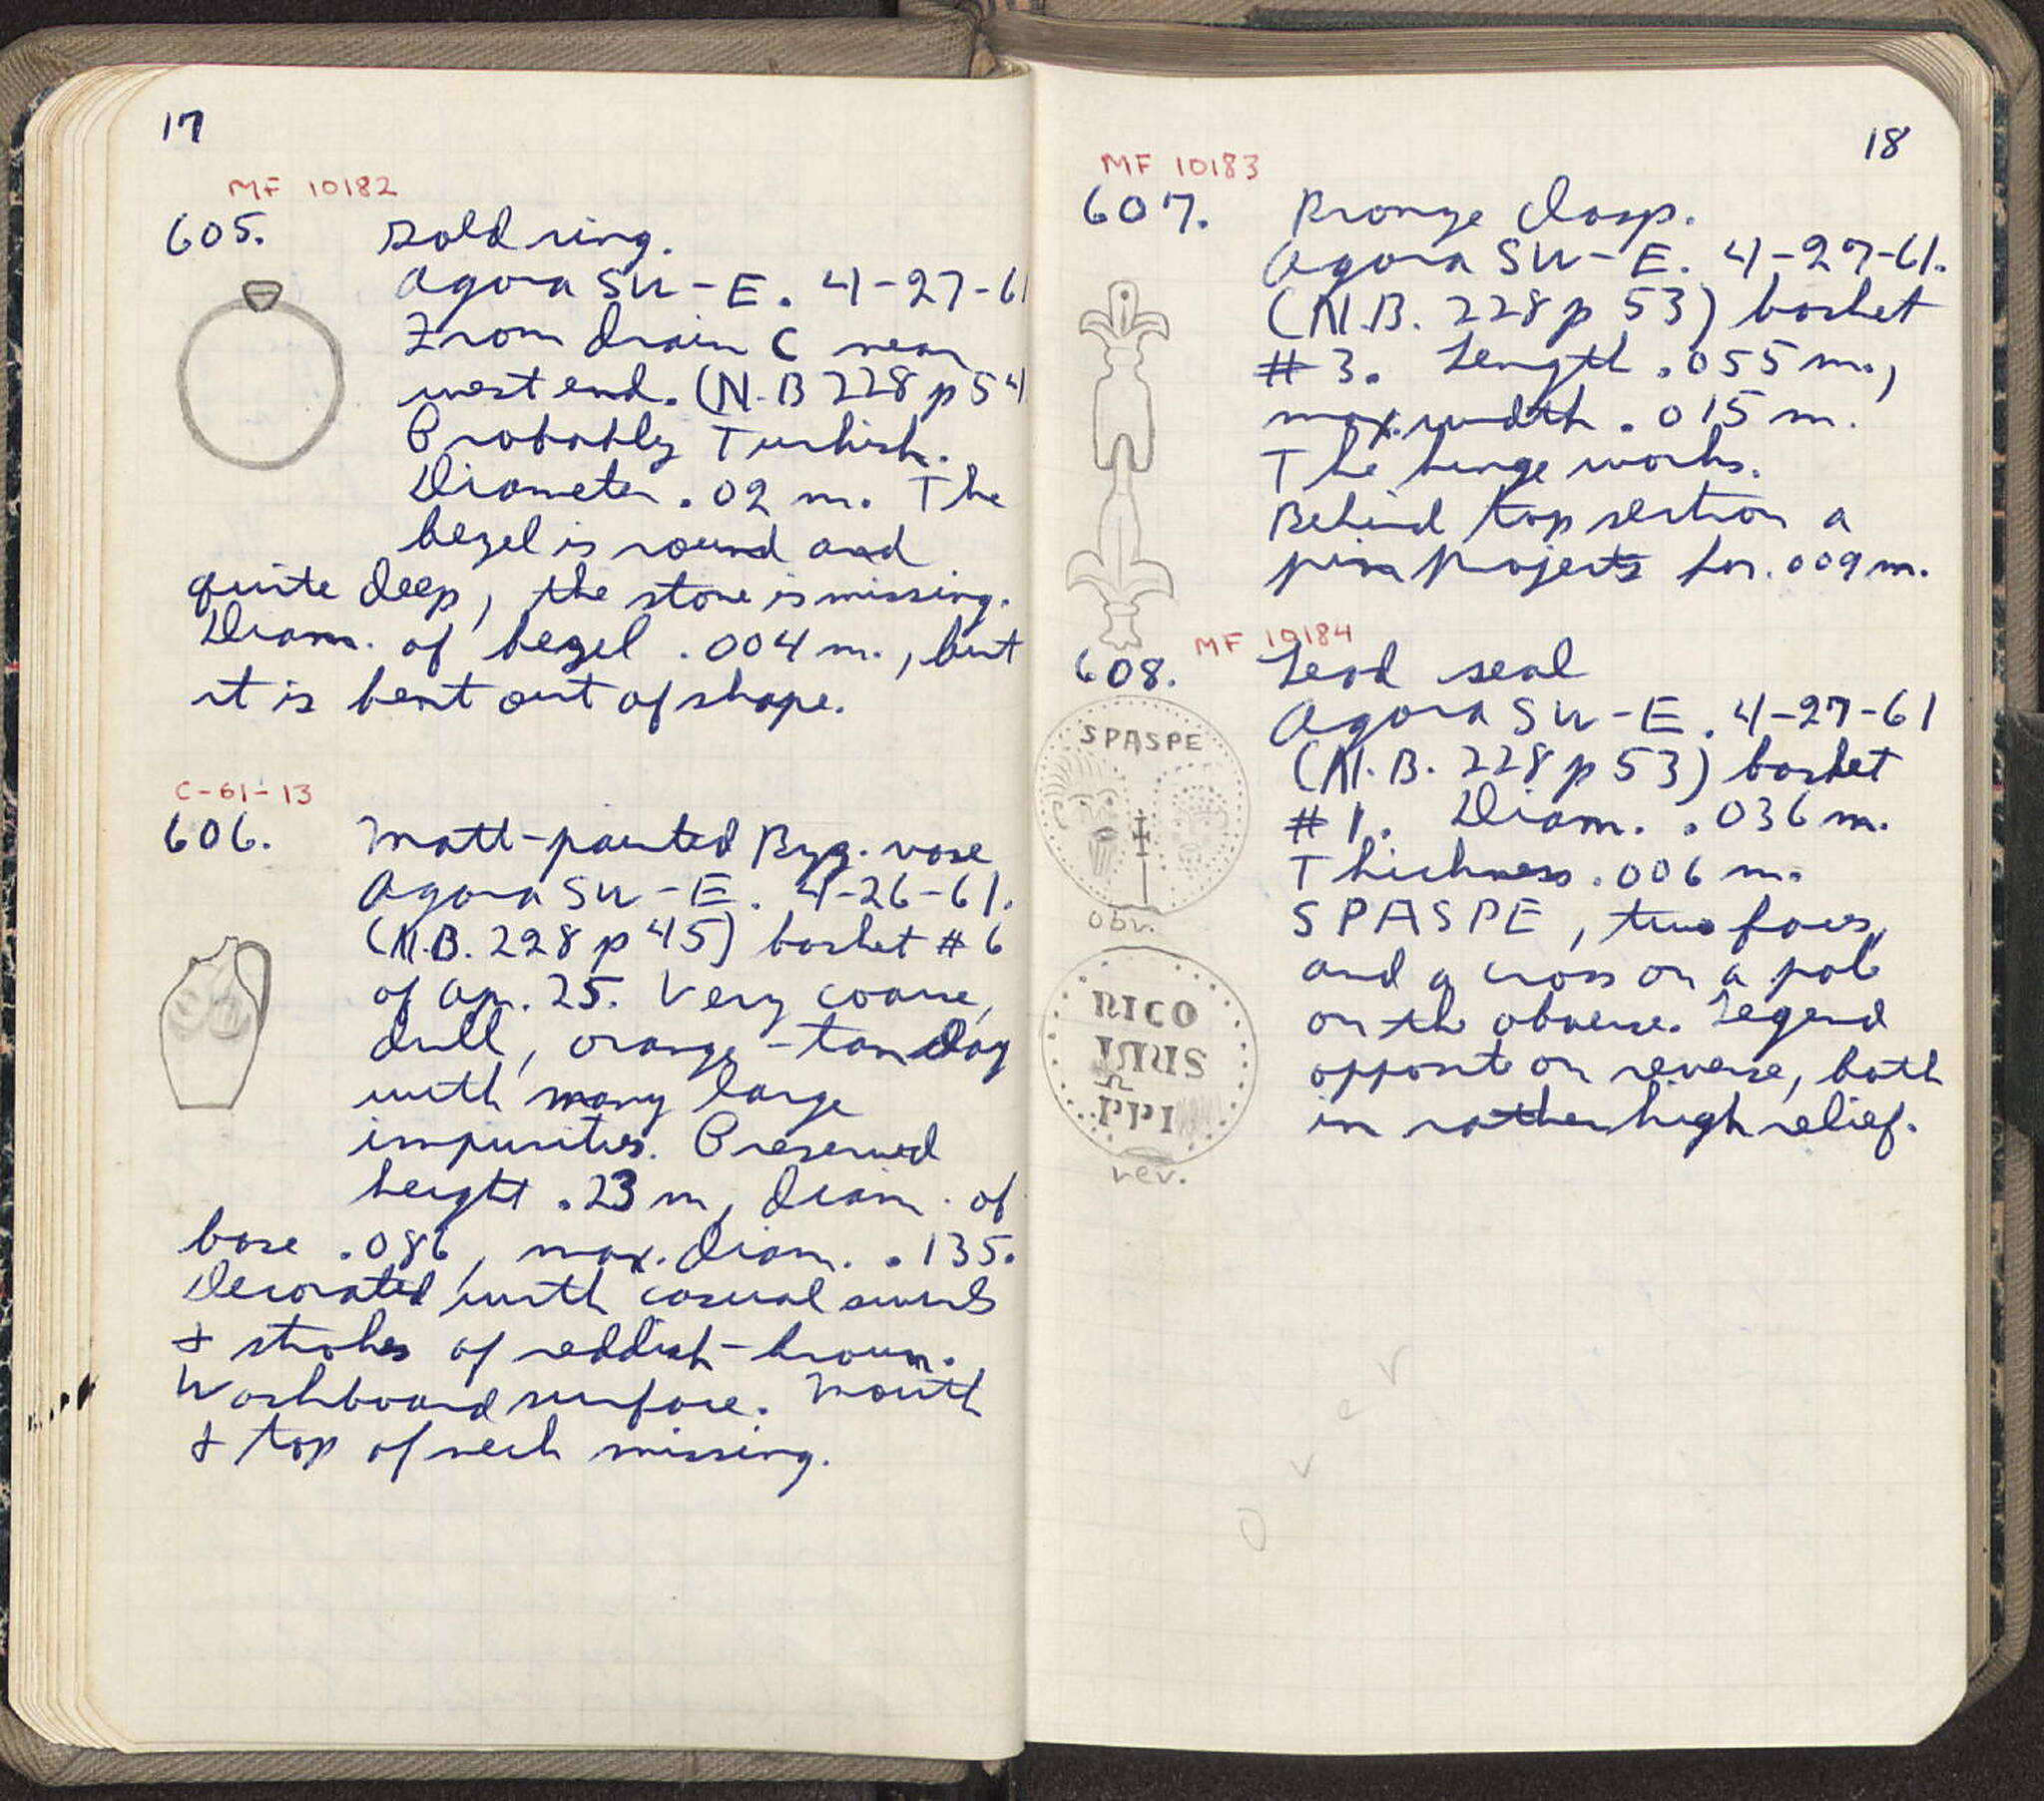 17
MF 10182
605. Gold ring.
Agora SW-E. 4-27-61
From drain C near
west end. (N.B 228 p 54
Probably Turkish.
Diameter .02 m. The
bezel is round and
quite deep, the stone is missing.
Diam. of bezel .004 m., but
it is bent out of shape.
C-61-13
606. Matt-painted Byz. vase
Agora SW-E. 4-26-61.
(N.B. 228 p 45) basket #6
of Ap. 25. Very coarse,
dull, orange-tan clay
with many large
impurities. Preserved
height .23 m, diam. of
base .086, max. diam. .135.
Decorated with casual swirls
+ strokes of reddish-brown.
Washboard surface. Mouth
+ top of neck missing.
18
MF 10183
607. Bronze clasp.
Agora SW-E. 4-27-61.
(N.B. 228 p 53) basket
#3. Length .055 m.,
max. width .015 m.
The hinge works.
Behind top section a
pin projects for .009 m.
MF 10184
608. Lead seal
Agora SW-E. 4-27-61
(N.B. 228 p 53) basket
#1. Diam. .036 m.
Thickness .006 m.
SPASPE, two faces,
and a cross on a pole
on the obverse. Legend
opposite on reverse, both
in rather high relief.
SPASPE
obv.
rev.